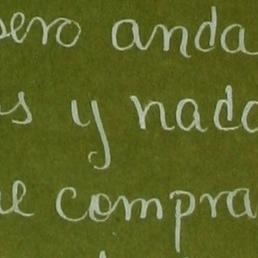 sero anda
s y nada
ue compra